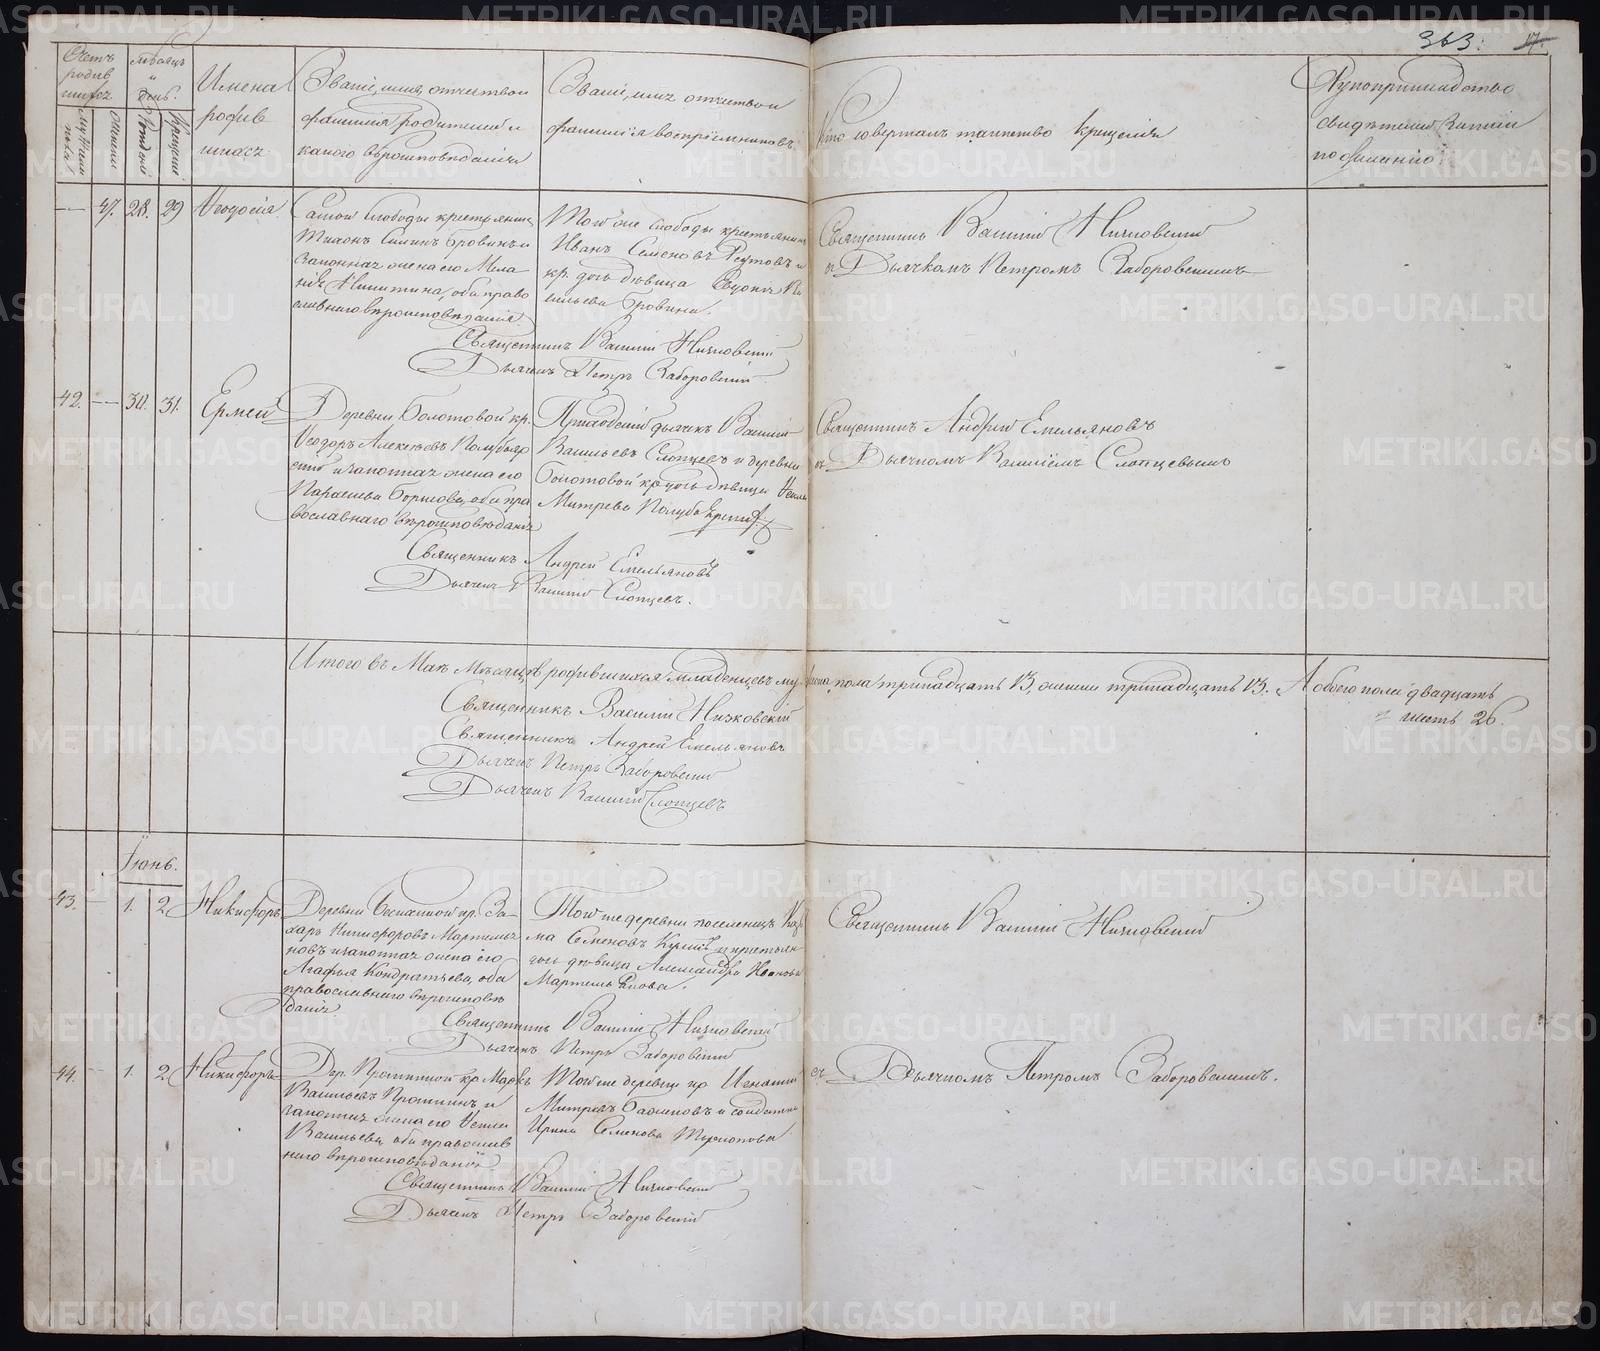 363. 17.
Счетъ родив шихся
мѣсяцъ и день.
Имена родив шихся
Званіе, имя, отчество и фамилія родителей и какого вѣроисповѣданія
Званіе, имя, отчество и фамилія воспріемниковъ.
Кто совершалъ таинство крещенія
Рукоприкладство свидѣтелей записи по желанію
47. 28. 29 Ѳеодосія
Самой Слободы крестьянинъ
Тихонъ Силинъ Бровинъ и
законная жена его Мела
нія Никитина, оба право
славнаго вѣроисповѣданія.
Той же Слободы крестьянинъ
Иванъ Семеновъ Реутовъ и
кр. дочь дѣвица Евдокія Ва
сильева Бровина.
Священникъ Василій Низковскій
съ Дьячкомъ Петромъ Заборовскимъ
Священникъ Василій Низковскій
Дьячекъ Петръ Заборовскій.
42. 30. 31. Ермей
Деревни Болотовой кр.
Ѳеодоръ Алексѣевъ
и законная жена его
Параскева Борисова, оба пра
вославнаго вѣроисповѣданія
Приходскій дьячекъ Василій
Васильевъ Слопцевъ и деревни
Болотовой кр. дочь дѣвица
Митрева
Священникъ Андрей Емельяновъ
съ Дьячкомъ Василіемъ Слопцевымъ
Священникъ Андрей Емельяновъ
Дьячекъ Василій Слопцевъ.
Итого въ Маѣ Мѣсяцѣ родившихся младенцевъ мужеска пола тринадцать 13, женска тринадцать 13. А обоего пола двадцать
шесть 26.
Священникъ Василій Низковскій
Священникъ Андрей Емельяновъ
Дьячекъ Петръ Заборовскій
Дьячекъ Василій Слопцевъ
Іюнь.
43. 1. 2 Никифоръ
Деревни кр. За-
харъ Никифоровъ Мартемья
новъ и законная жена его
Агафья Кондратьева, оба
православнаго вѣроисповѣ
данія
Той же деревни поселенецъ
Семеновъ и крестьян.
дочь дѣвица Александра Иванова
Мартемьянова.
Священникъ Василій Низковскій
Священникъ Василій Низковскій
Дьячекъ Петръ Заборовскій
44. 1. 2 Никифоръ
Дер. кр. Маркъ
Васильевъ и
законная жена его
Васильева, оба православ
наго вѣроисповѣданія.
Той же деревни кр. Игнатій
Митревъ и солдатка
Ирина Семенова
съ Дьячкомъ Петромъ Заборовскимъ.
Священникъ Василій Низковскій
Дьячекъ Петръ Заборовскій
METRIKI.GASO-URAL.RU